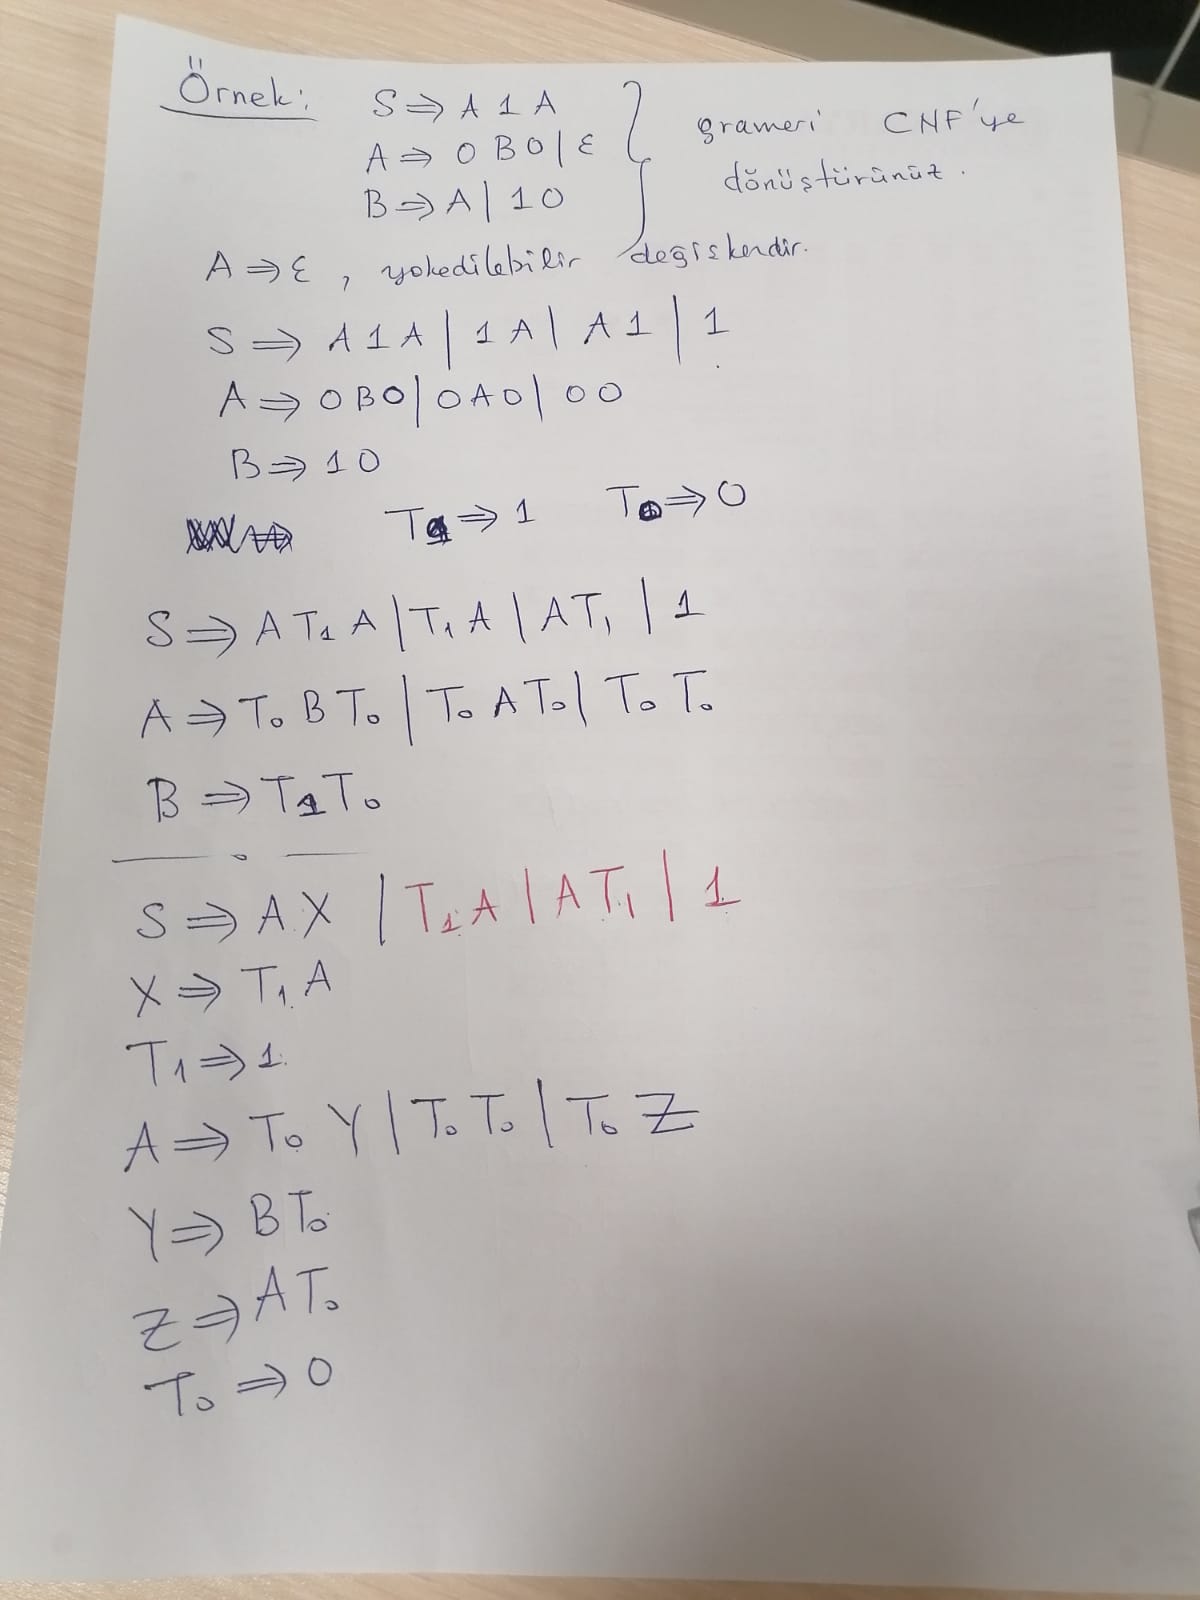 Örnek: S ⇒ A 1 A
A ⇒ 0 B 0 | ε
B ⇒ A | 1 0
grameri CNF'ye
dönüştürünüz.
A ⇒ ε , yokedilebilir değişkendir.
S ⇒ A 1 A | 1 A | A 1 | 1
A ⇒ 0 B 0 | 0 A 0 | 0 0
B ⇒ 1 0
T₁ ⇒ 1 T₀ ⇒ 0
S ⇒ A T₁ A | T₁ A | A T₁ | 1
A ⇒ T₀ B T₀ | T₀ A T₀ | T₀ T₀
B ⇒ T₁ T₀
S ⇒ A X | T₁ A | A T₁ | 1
X ⇒ T₁ A
T₁ ⇒ 1
A ⇒ T₀ Y | T₀ T₀ | T₀ Z
Y ⇒ B T₀
Z ⇒ A T₀
T₀ ⇒ 0